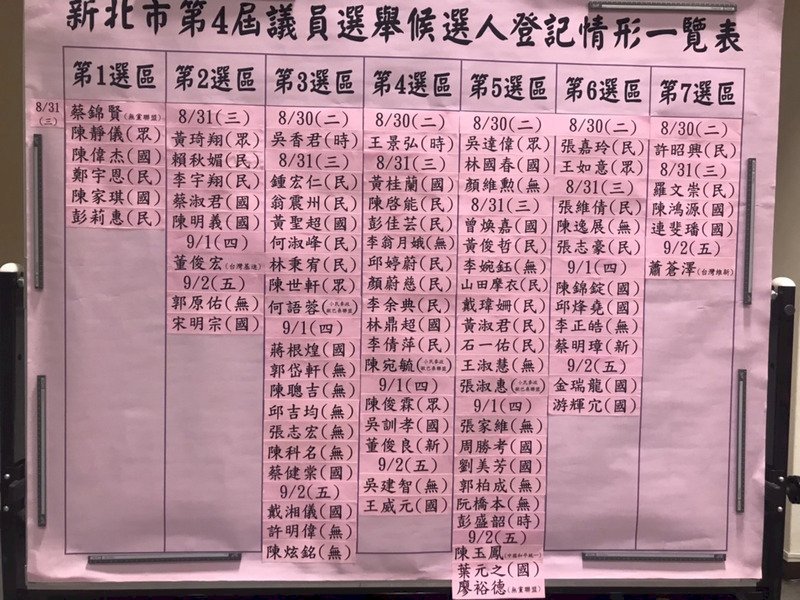 新北市第4屆議員選舉候選人登記情形一覽表
第1選區
8/31
(三)
蔡錦賢(無黨聯盟)
陳靜儀(眾)
陳偉杰(國)
鄭宇恩(民)
陳家琪(國)
彭莉惠(民)
第2選區
8/31(三)
黃琦翔(眾)
賴秋媚(民)
李宇翔(民)
蔡淑君(國)
陳明義(國)
9/1(四)
董俊宏(台灣基進)
9/2(五)
郭原佑(無)
宋明宗(國)
第3選區
8/30(二)
吳香君(時)
8/31(三)
鍾宏仁(民)
翁震州(民)
黃聖超(國)
何淑峰(民)
林秉宥(民)
陳世軒(眾)
何語蓉(小民參政歐巴桑聯盟)
9/1(四)
蔣根煌(國)
郭岱軒(無)
陳聰吉(無)
邱吉均(無)
張志宏(無)
陳科名(無)
蔡健棠(國)
9/2(五)
戴湘儀(國)
許明偉(無)
陳炫銘(無)
第4選區
8/30(二)
王景弘(時)
8/31(三)
黃桂蘭(國)
陳啓能(民)
彭佳芸(民)
李翁月娥(無)
邱婷蔚(民)
顏蔚慈(民)
李余典(民)
林鼎超(國)
李倩萍(民)
陳宛毓(小民參政歐巴桑聯盟)
9/1(四)
陳俊霖(眾)
吳訓孝(國)
董俊良(新)
9/2(五)
吳建智(無)
王威元(國)
第5選區
8/30(二)
吳達偉(眾)
林國春(國)
顏維勲(無)
8/31(三)
曾煥嘉(國)
黃俊哲(民)
李婉鈺(無)
山田摩衣(民)
戴瑋姍(民)
黃淑君(民)
石一佑(民)
王淑慧(無)
張淑惠(小民參政歐巴桑聯盟)
9/1(四)
張家維(無)
周勝考(國)
劉美芳(國)
郭柏成(無)
阮橋本(無)
彭盛韶(時)
9/2(五)
陳玉鳳(中國和平統一)
葉元之(國)
廖裕德(無黨聯盟)
第6選區
8/30(二)
張嘉玲(民)
王如意(眾)
8/31(三)
張維倩(民)
陳逸展(無)
張志豪(民)
9/1(四)
陳錦錠(國)
邱烽堯(國)
李正皓(無)
蔡明璋(新)
9/2(五)
金瑞龍(國)
游輝宂(國)
第7選區
8/30(二)
許昭興(民)
8/31(三)
羅文崇(民)
陳鴻源(國)
連斐璠(國)
9/2(五)
蕭蒼澤(台灣維新)